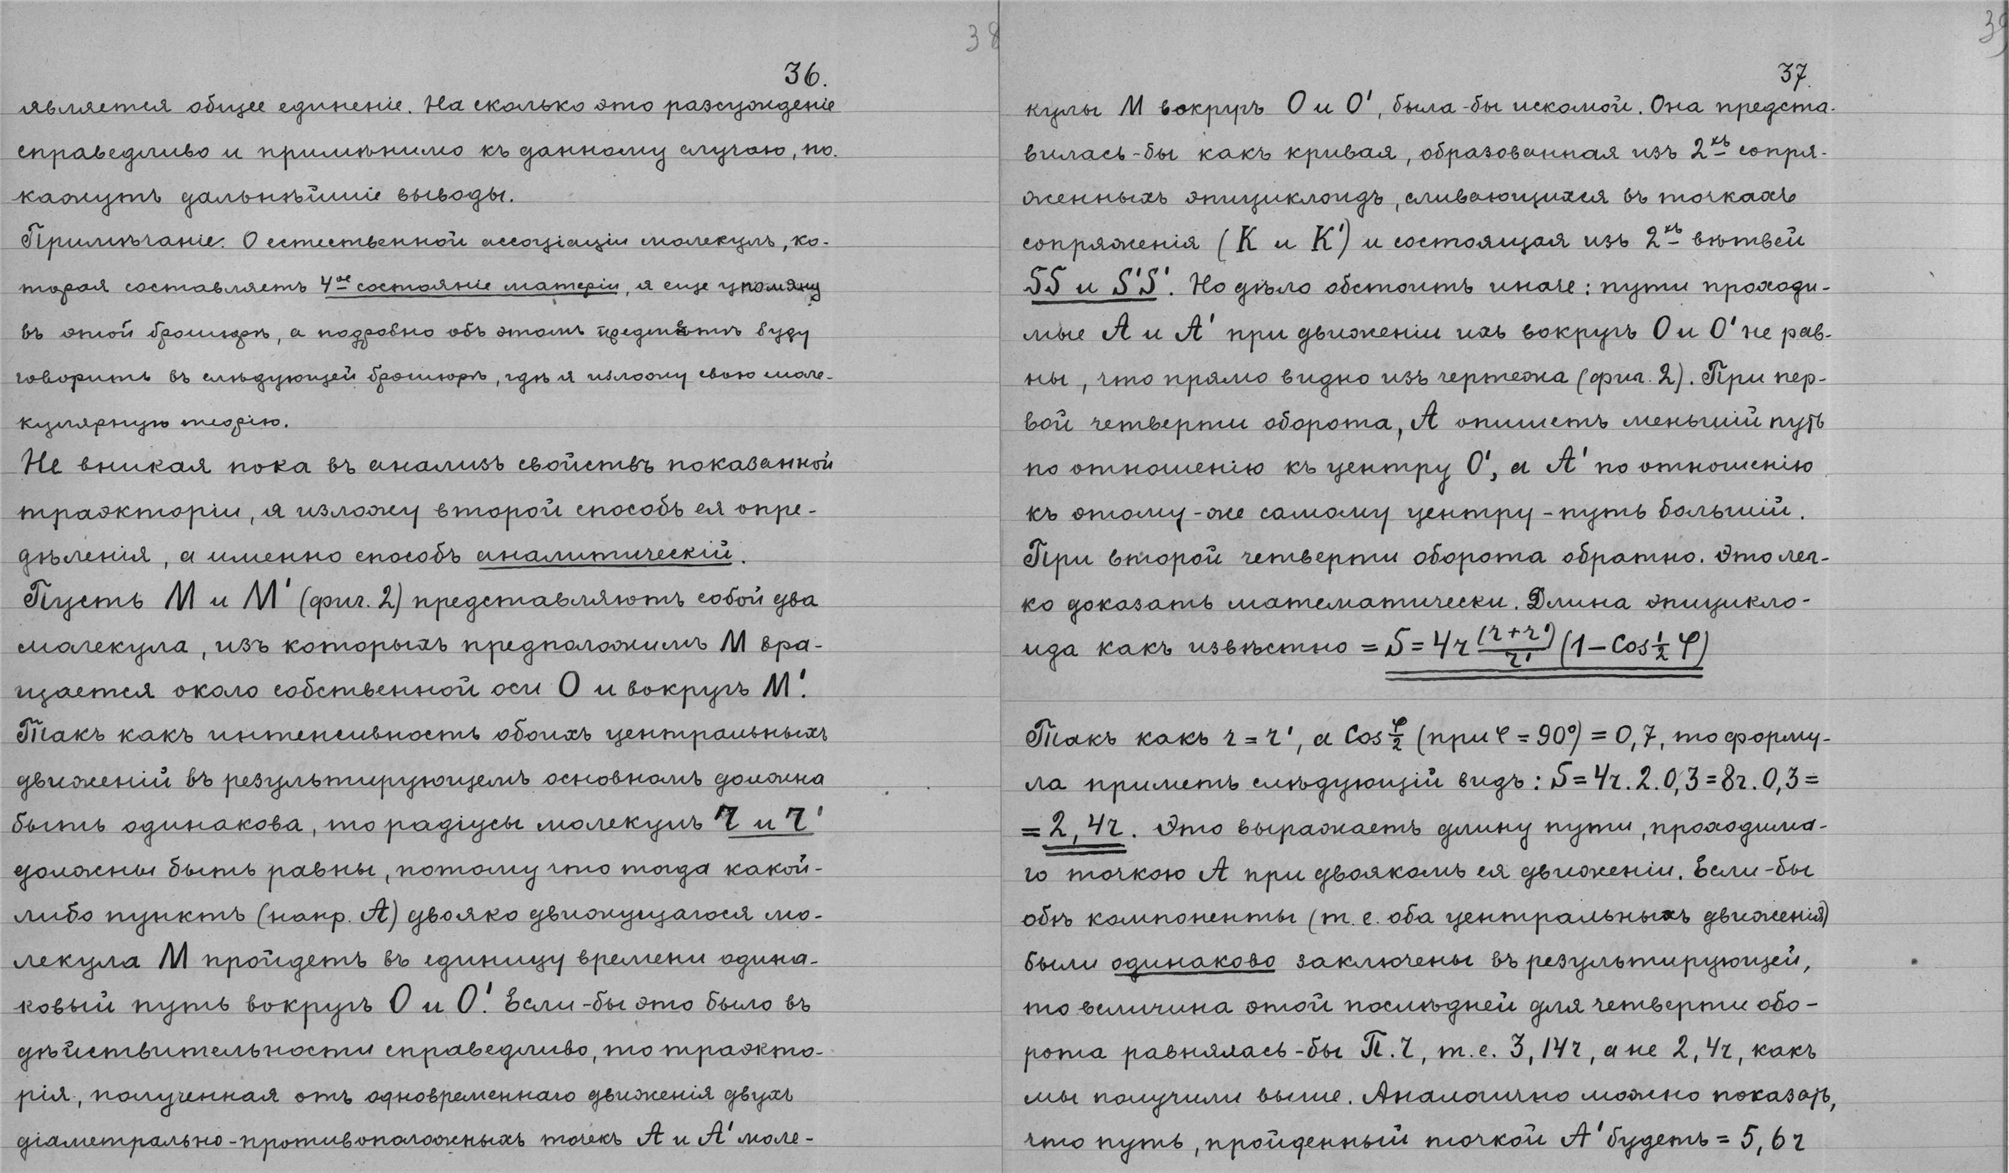 38
36.
является общее единеніе. На сколько это разсужденіе
справедливо и примѣнимо къ данному случаю, по-
кажутъ дальнѣйшіе выводы.
Примѣчаніе: О естественной ассоціаціи молекулъ, ко-
торая составляетъ 4ое состояніе матеріи, я еще упомяну
въ этой брошюрѣ, а подробно объ этомъ предметѣ буду
говорить въ слѣдующей брошюрѣ, гдѣ я изложу свою моле-
кулярную теорію.
Не вникая пока въ анализъ свойствъ показанной
траэкторіи, я изложу второй способъ ея опре-
дѣленія, а именно способъ аналитическій.
Пусть М и М' (фиг. 2) представляютъ собой два
молекула, изъ которыхъ предположимъ М вра-
щается около собственной оси О и вокругъ М'.
Такъ какъ интенсивность обоихъ центральныхъ
движеній въ результирующемъ основномъ должна
быть одинакова, то радіусы молекулъ r и r'
должны быть равны, потому что тогда какой-
либо пунктъ (напр. А) двояко движущагося мо-
лекула М пройдетъ въ единицу времени одина-
ковый путь вокругъ О и О'. Если-бы это было въ
дѣйствительности справедливо, то траэкто-
рія, полученная отъ одновременнаго движенія двухъ
діаметрально-противоположныхъ точекъ А и А' моле-
39
37.
кулы М вокругъ О и О', была-бы искомой. Она предста-
вилась-бы какъ кривая, образованная изъ 2хъ сопря-
женныхъ эпициклоидъ, сливающихся въ точкахъ
сопряженія (К и К') и состоящая изъ 2хъ вѣтвей
SS и S'S'. Но дѣло обстоитъ иначе: пути проходи-
мые А и А' при движеніи ихъ вокругъ О и О' не рав-
ны, что прямо видно изъ чертежа (фиг. 2). При пер-
вой четверти оборота, А опишетъ меньшій путь
по отношенію къ центру О', а А' по отношенію
къ этому-же самому центру - путь большій.
При второй четверти оборота обратно. Это лег-
ко доказать математически. Длина эпицикло-
ида какъ извѣстно = S = 4r (r+r')/r' (1 – Cos ½ φ)
Такъ какъ r = r', а Cos φ/2 (при φ = 90°) = 0,7, то форму-
ла приметъ слѣдующій видъ: S = 4r. 2. 0,3 = 8r. 0,3 =
= 2,4r. Это выражаетъ длину пути, проходима-
го точкою А при двоякомъ ея движеніи. Если-бы
обѣ компоненты (т. е. оба центральныхъ движенія)
были одинаково заключены въ результирующей,
то величина этой послѣдней для четверти обо-
рота равнялась-бы П. r, т. е. 3,14r, а не 2,4r, какъ
мы получили выше. Аналогично можно показать,
что путь, пройденный точкой А' будетъ = 5,6r